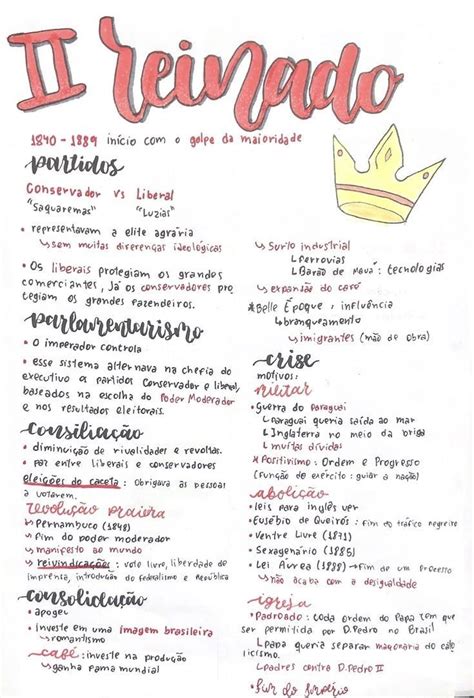 II reinado
1840 - 1889 início com o golpe da maioridade
partidos
Conservador vs Liberal
"Saquaremas" "Luzias"
• representavam a elite agrária
↳ sem muitas diferenças ideológicas
• Os liberais protegiam os grandes
comerciantes, Já os conservadores pro
tegiam os grandes fazendeiros.
parlamentarismo
• o imperador controla
• esse sistema alternava na chefia do
executivo a partidos Conservador e liberal,
baseados na escolha do Poder Moderador
e nos resultados eleitorais.
consiliação
• diminuição de rivalidades e revoltas.
• paz entre liberais e conservadores
eleições do caceta: obrigava as pessoas
a votarem.
revolução praieira
↳ Pernambuco (1848)
↳ fim do poder moderador
↳ manifesto ao mundo
↳ reivindicações: voto livre, liberdade de
imprensa, introdução do federalismo e República
consolidação
• apogeu
• investe em uma imagem brasileira
↳ romantismo
café: investe na produção
↳ ganha fama mundial
↳ Surto industrial
↳ Ferrovias
↳ Barão de Mauá: tecnologias
↳ expansão do café
*Belle Époque: influência
↳ branqueamento
↳ imigrantes (mão de obra)
crise
motivos:
militar
• Guerra do Paraguai
↳ Paraguai queria saída ao mar
↳ Inglaterra no meio da briga
↳ muitas dívidas
*Positivismo: Ordem e Progresso
(função do exército: guiar a nação)
abolição
• leis para inglês ver
• Eusébio de Queirós: fim do tráfico negreiro
• Ventre Livre (1871)
• Sexagenário (1885)
• Lei Áurea (1888) → fim de um processo
↳ não acaba com a desigualdade
igreja
• Padroado: toda ordem do Papa tem que
ser permitida por D.Pedro no Brasil
↳ Papa queria separar maçonaria do cato
licismo.
↳ Padres contra D.Pedro II
• fim do império